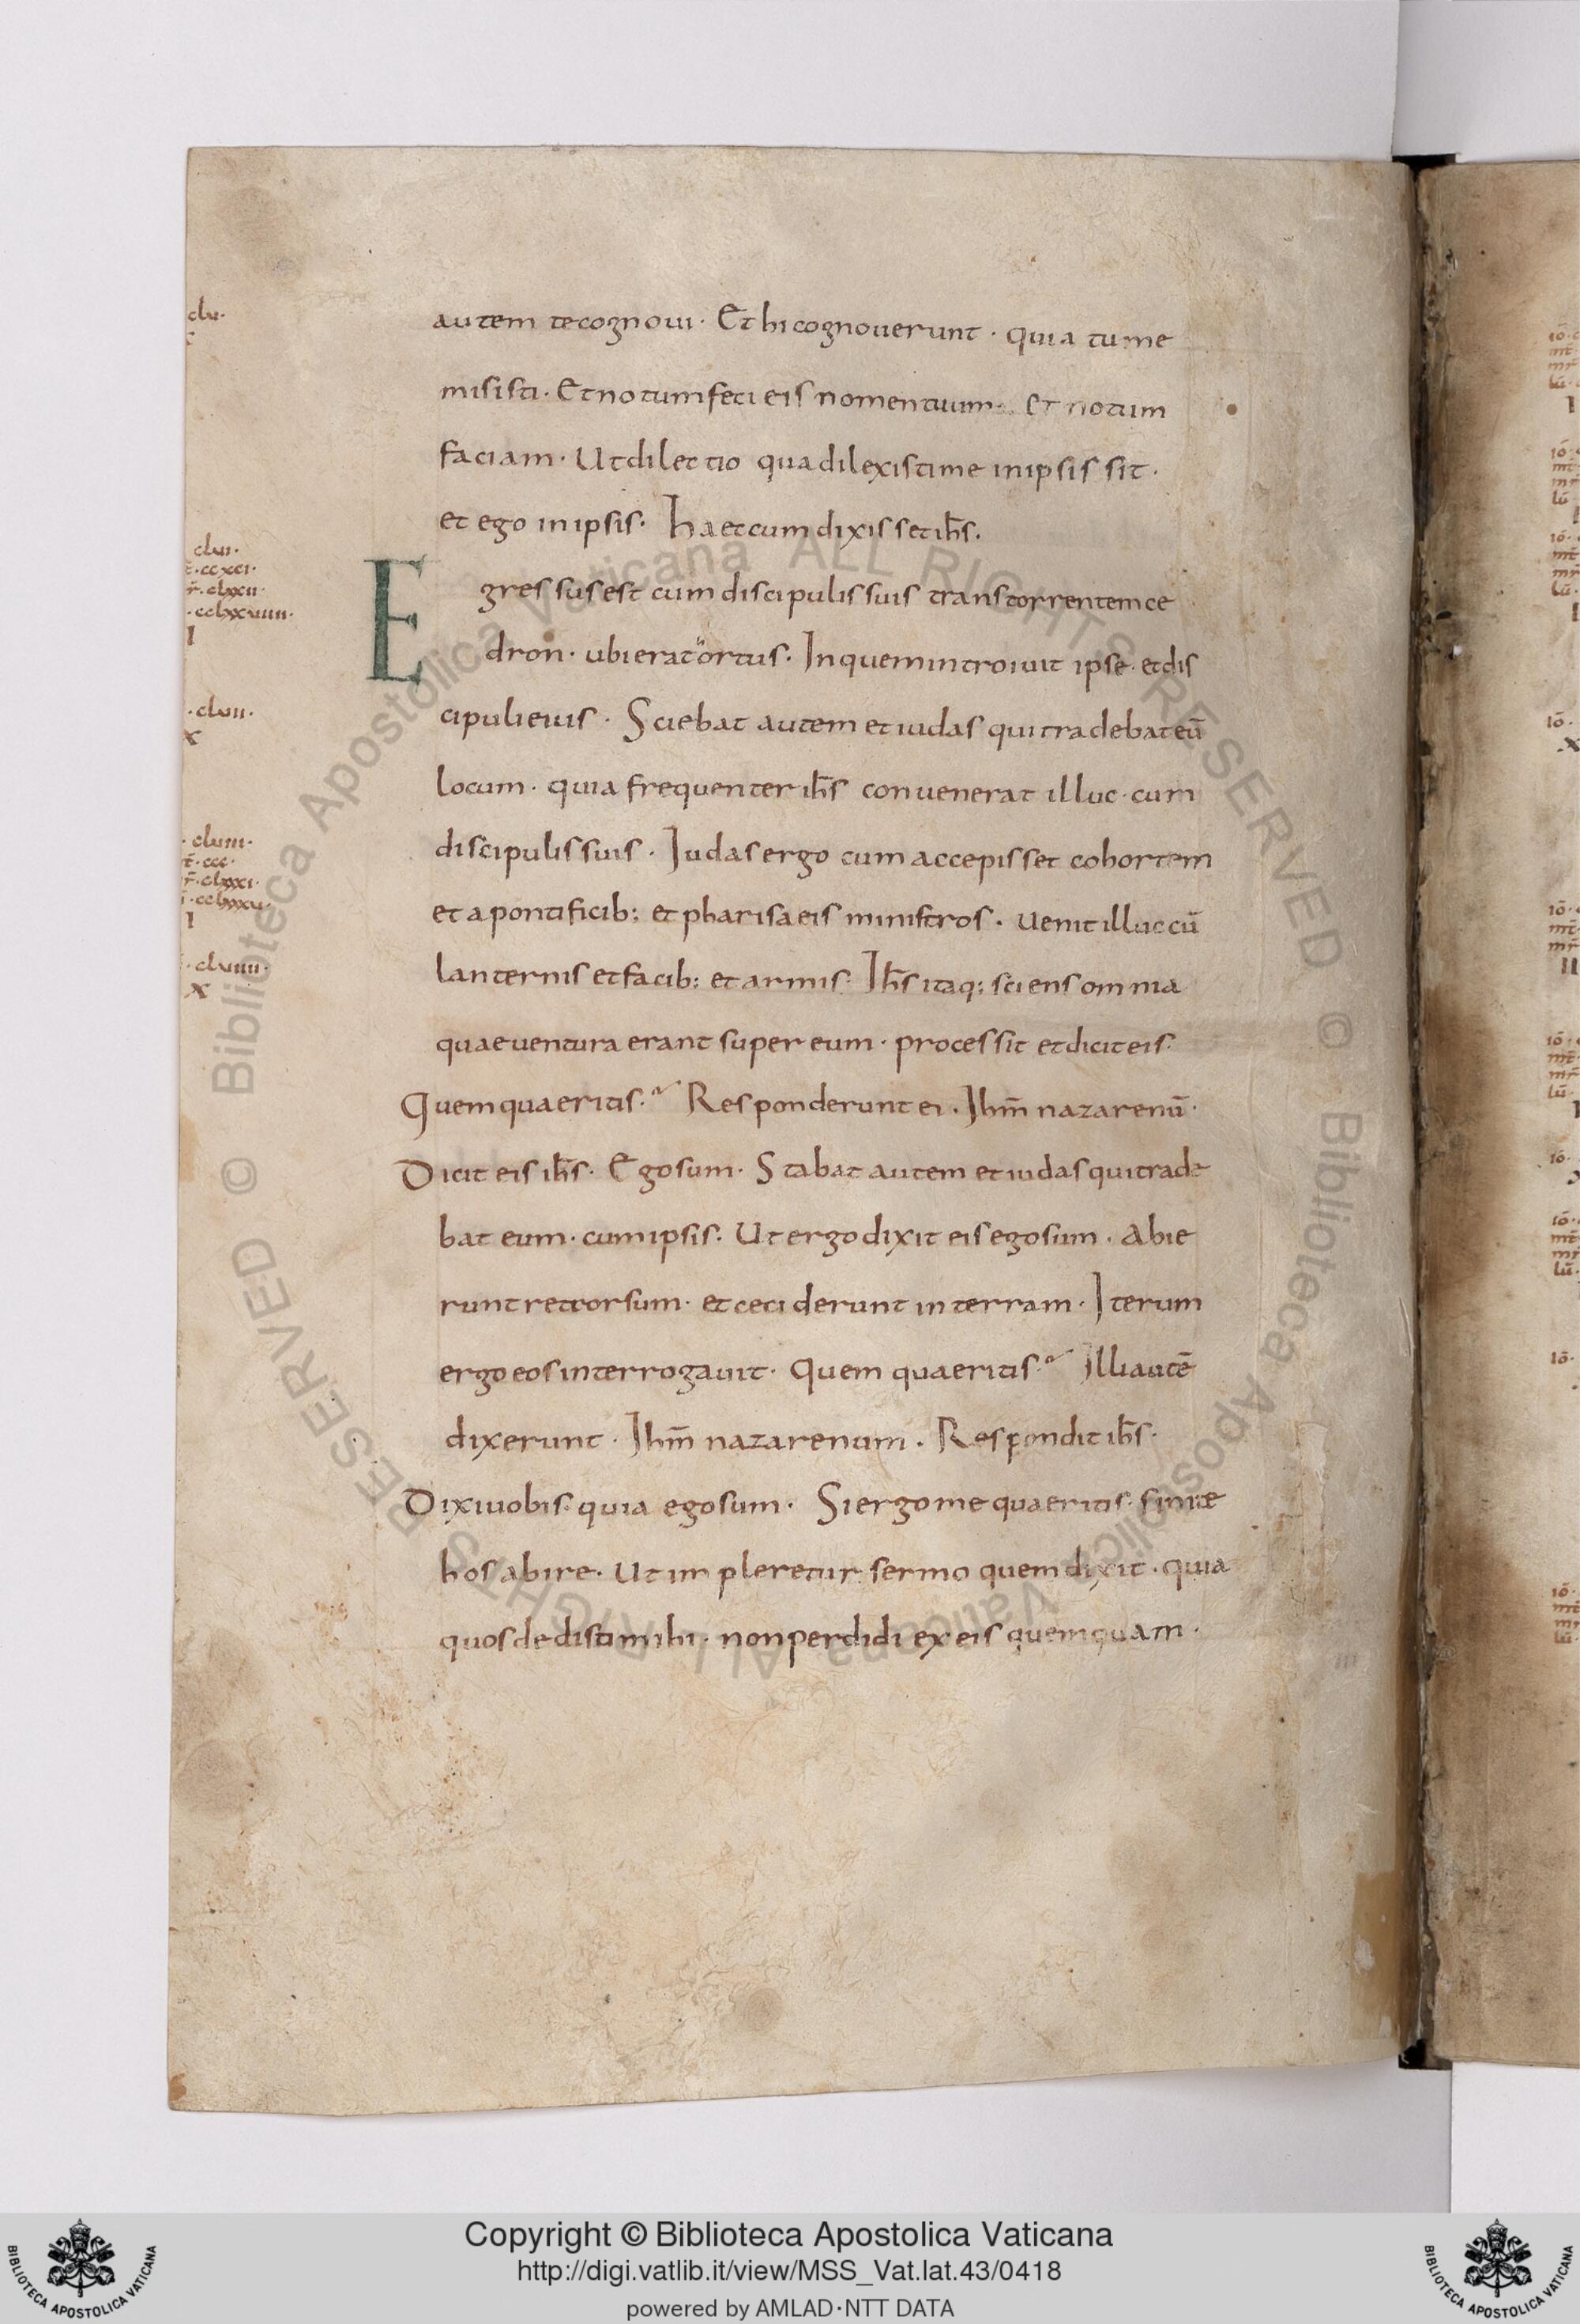 autem te cognovi · Et hi cognoverunt · quia tu me
misisti · Et notum feci eis nomen tuum · et notum
faciam · Ut dilectio qua dilexisti me in ipsis sit ·
et ego in ipsis · Haec cum dixisset ih̅s ·
Egressus est cum discipulis suis trans torrentem ce
dron · ubi erat ortus · In quem introivit ipse · et dis
cipuli eius · Sciebat autem et iudas qui tradebat eū
locum · quia frequenter ih̅s convenerat illuc · cum
discipulis suis · Iudas ergo cum accepisset cohortem
et a pontificib; et pharisaeis ministros · venit illuc cū
lanternis et facib; et armis · Ih̅s itaq; sciens omnia
quae ventura erant super eum · processit et dicit eis ·
Quem quaeritis · Responderunt ei · Ihm̅ nazarenū ·
Dicit eis ih̅s · Ego sum · Stabat autem et iudas qui trade
bat eum · cum ipsis · Ut ergo dixit eis ego sum · Abie
runt retrorsum · et ceciderunt in terram · Iterum
ergo eos interrogavit · Quem quaeritis · Illi autē
dixerunt · Ihm̅ nazarenum · Respondit ih̅s ·
Dixi vobis · quia ego sum · Si ergo me quaeritis · sinite
hos abire · Ut impleretur sermo quem dixit · quia
quos dedisti mihi · non perdidi ex eis quemquam ·
clv·
clvi·
·ccxci·
r̅·clxxii·
·cclxxviiii·
I
·clvii·
X
·clviii·
·ccc·
r̅·clxxxi·
I
·clviiii·
X
© Biblioteca Apostolica Vaticana ALL RIGHTS RESERVED © Biblioteca Apostolica Vaticana ALL RIGHTS RESERVED
Copyright © Biblioteca Apostolica Vaticana
http://digi.vatlib.it/view/MSS_Vat.lat.43/0418
powered by AMLAD·NTT DATA
BIBLIOTECA APOSTOLICA VATICANA
BIBLIOTECA APOSTOLICA VATICANA